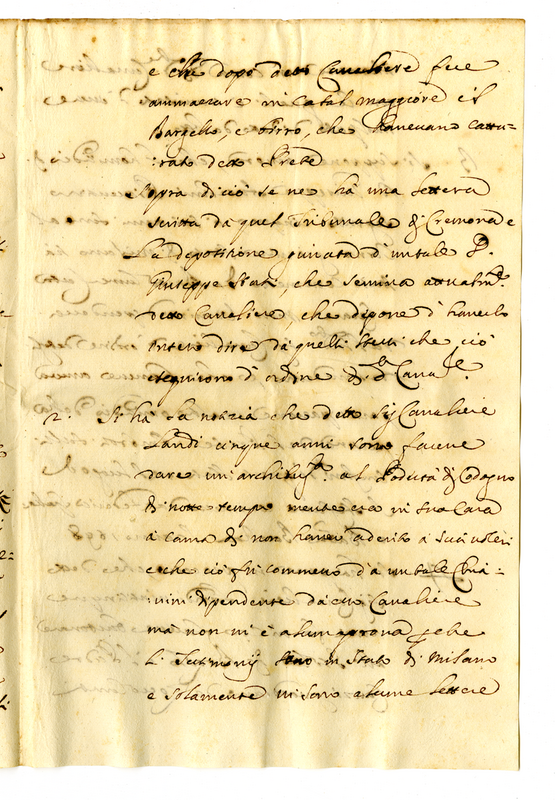 e che dopo detto Cavaliere fece
ammazzare in Casal maggiore il
Bargello, e Birro, che havevano cattu=
:rato detto Prete
Sopra di ciò se ne hà una lettera
scritta da quel Tribunale di Cremona e
La depositione giurata d'un tale P.
Giuseppe Stati, che serviva attualm.te
detto Cavaliere, che dipone d'haverlo
inteso dire da quelli stessi che ciò
eseguirono d'ordine di d.o Cava.re
2: Si hà La notizia che detto Sig Cavaliere
Landi cinque anni sono facesse
dare un'archibug.ta al Podestà di Codogno
di notte tempo mentre era in sua Casa
à causa di non haver aderito à suoi voleri
e che ciò fù commesso dà un tale
:nini dipendente da esso Cavaliere
mà non vi è alcuna prova perche
Li Testimonij sono in Stato di Milano
e solamente vi sono alcune lettere